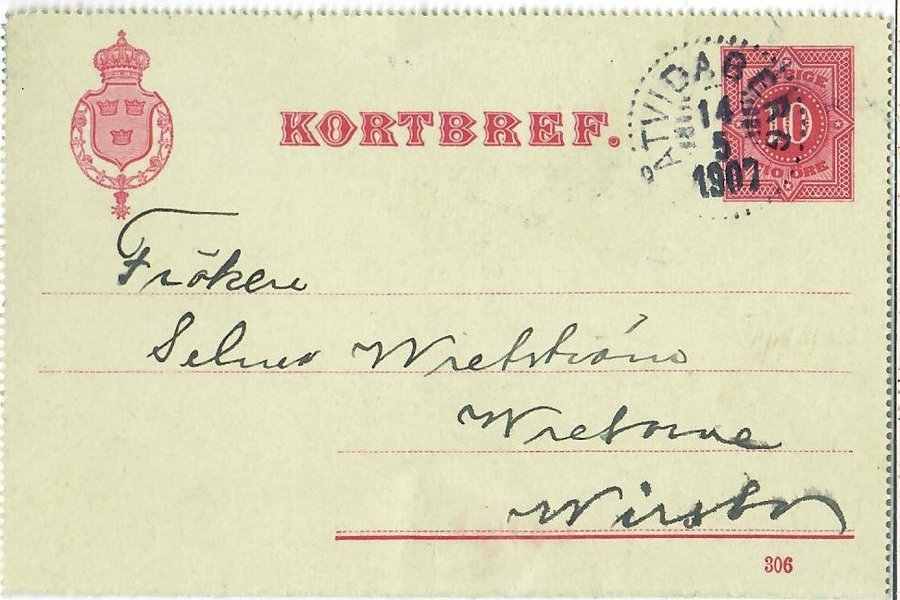 KORTBREF.
ÅTVIDABERG
14
5
1907
10
TIO ÖRE
Fröken
Selma Wretström
Wretorna
Wirsbo
306